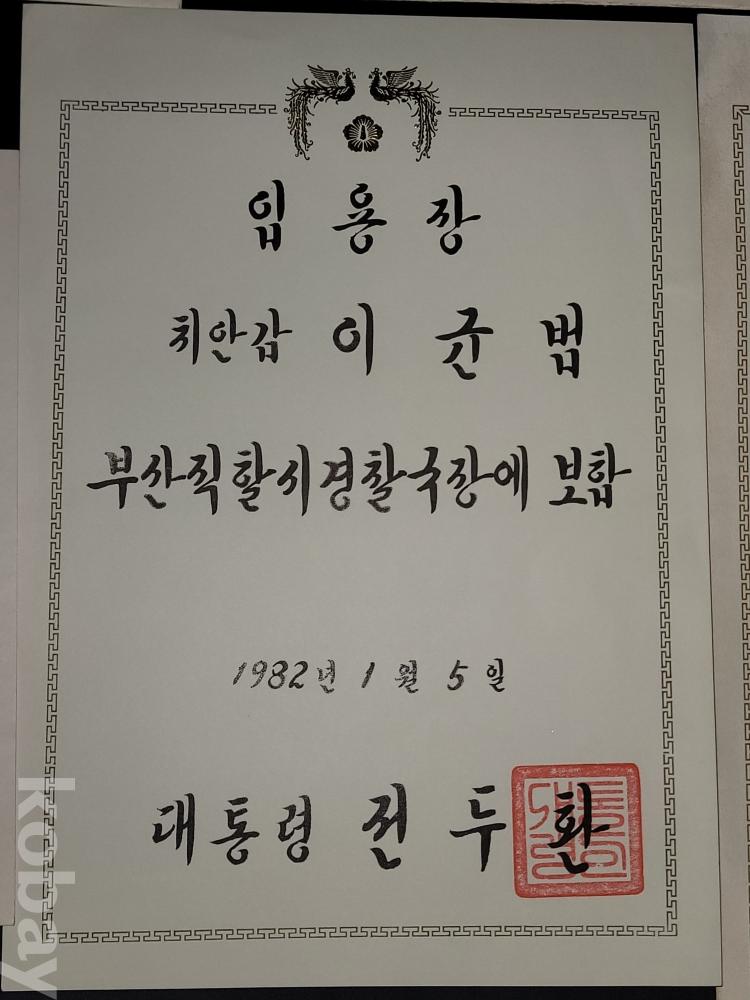 임용장
치안감 이균범
부산직할시경찰국장에 보함
1982년 1월 5일
대통령 전두환
kobay